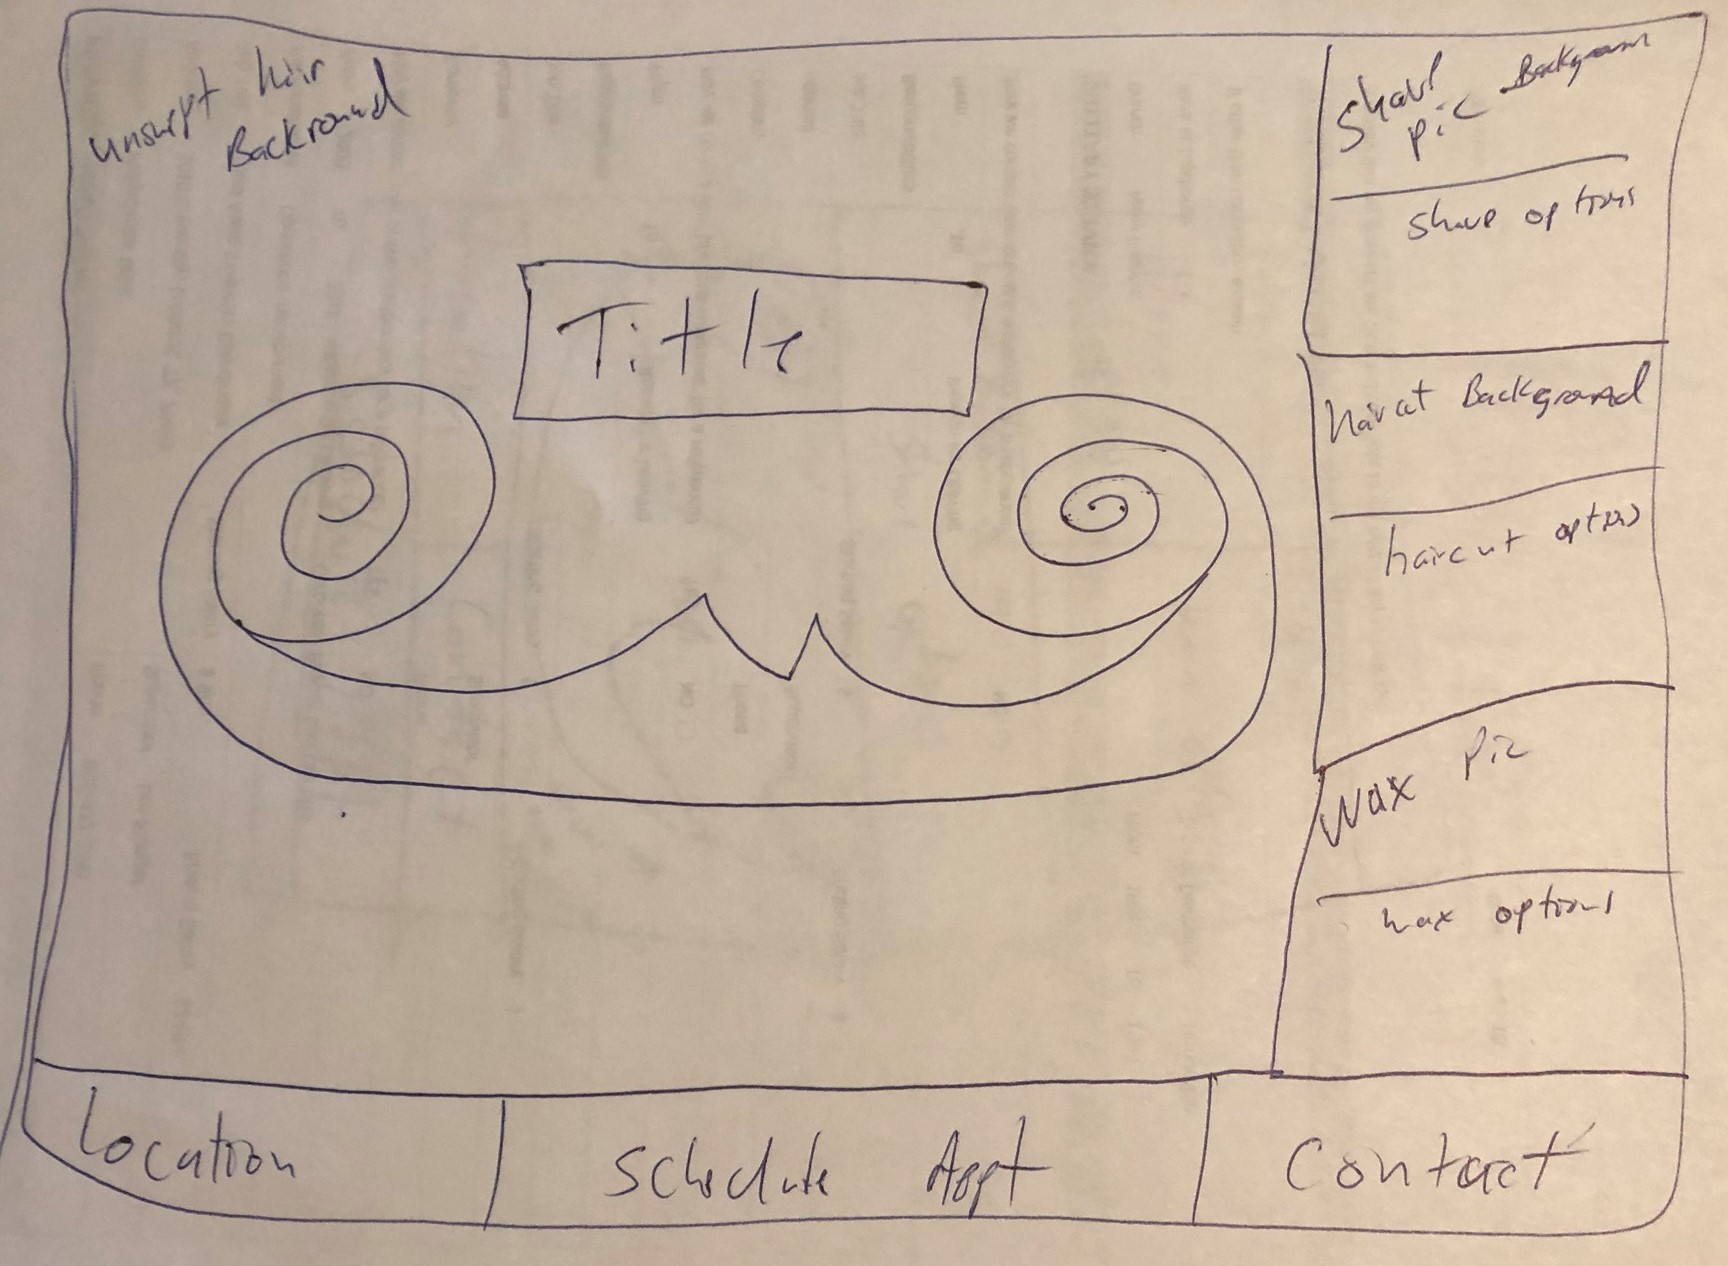 hair
Backround
Title
pic Background
shave options
haircut Background
haircut options
Wax Pic
wax options
Location
Schedule Appt
Contact